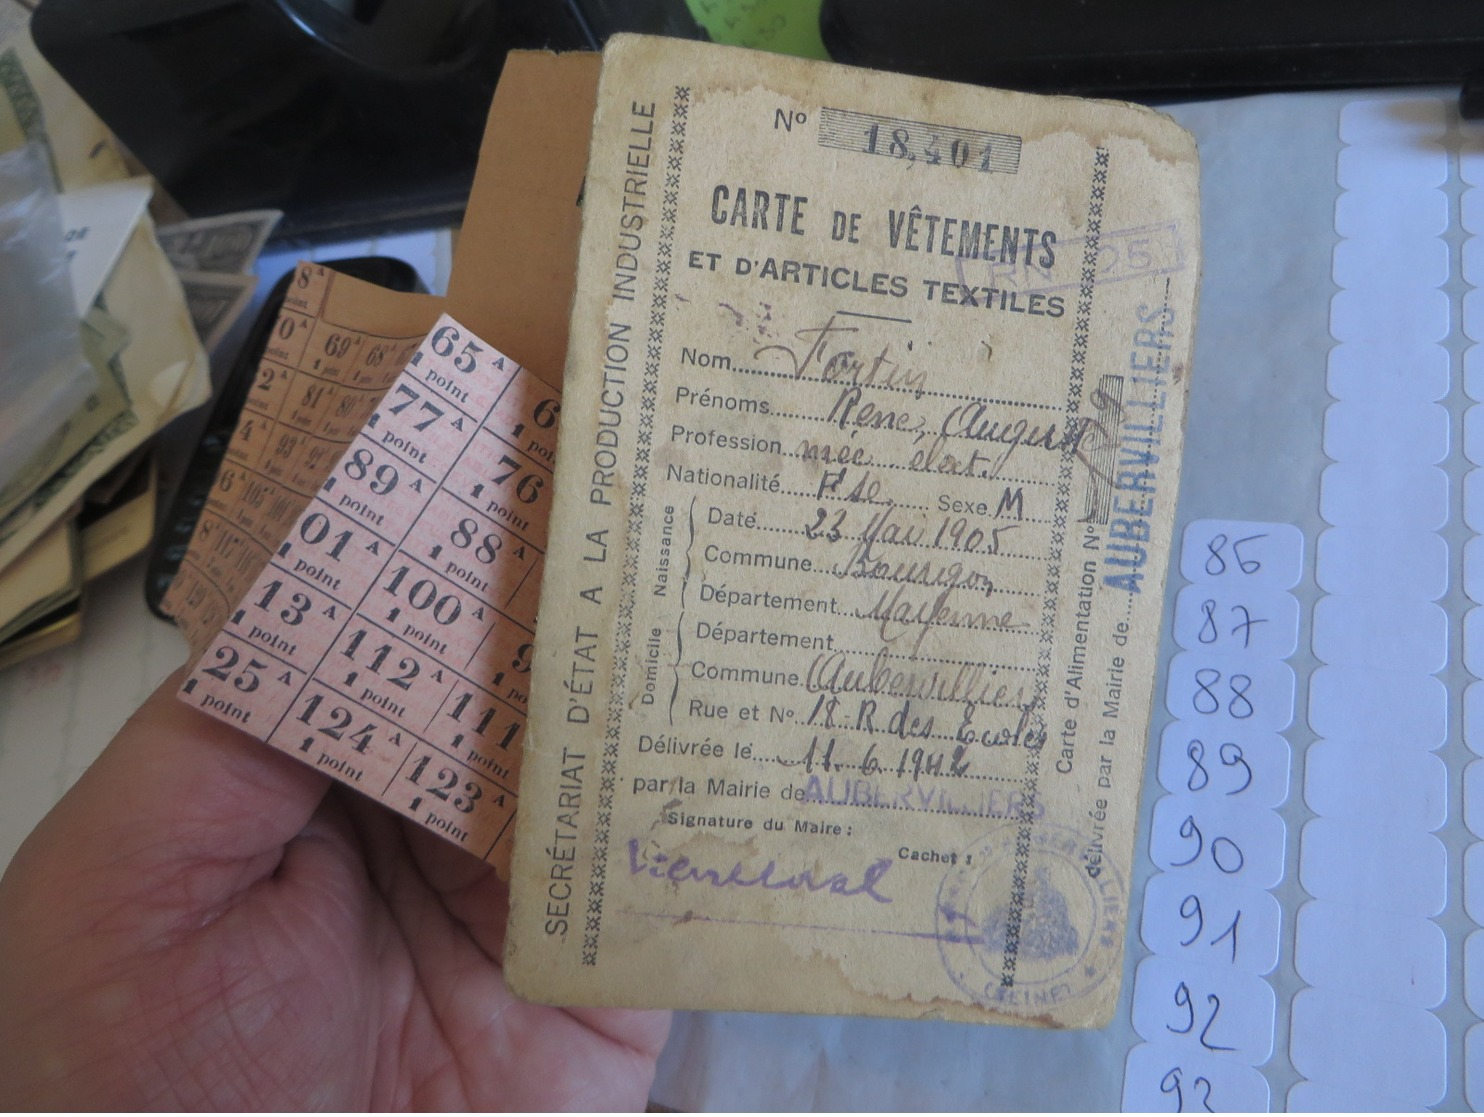 SECRÉTARIAT D'ÉTAT A LA PRODUCTION INDUSTRIELLE
Nº 18,401
CARTE DE VÊTEMENTS
ET D'ARTICLES TEXTILES
Nom
Prénoms René, Auguste
Profession méc. élect.
Nationalité Fse Sexe M
Naissance
Date 23 Mai 1905
Commune
Département Mayenne
Domicile
Département
Commune Aubervilliers
Rue et Nº 18 R des Ecoles
Délivrée le 11.6.1942
par la Mairie de AUBERVILLIERS
Signature du Maire :
Cachet :
(SEINE)
Carte d'Alimentation Nº
délivrée par la Mairie de AUBERVILLIERS
65 A
1 point
77 A
1 point
76
1 point
89 A
1 point
88 A
1 point
01 A
point
100 A
1 point
13 A
point
112 A
1 point
111
25 A
1 point
124 A
1 point
123 A
1 point
8 A
point
69 A
68 A
81 A
80
93
92
86
87
88
89
90
91
92
93